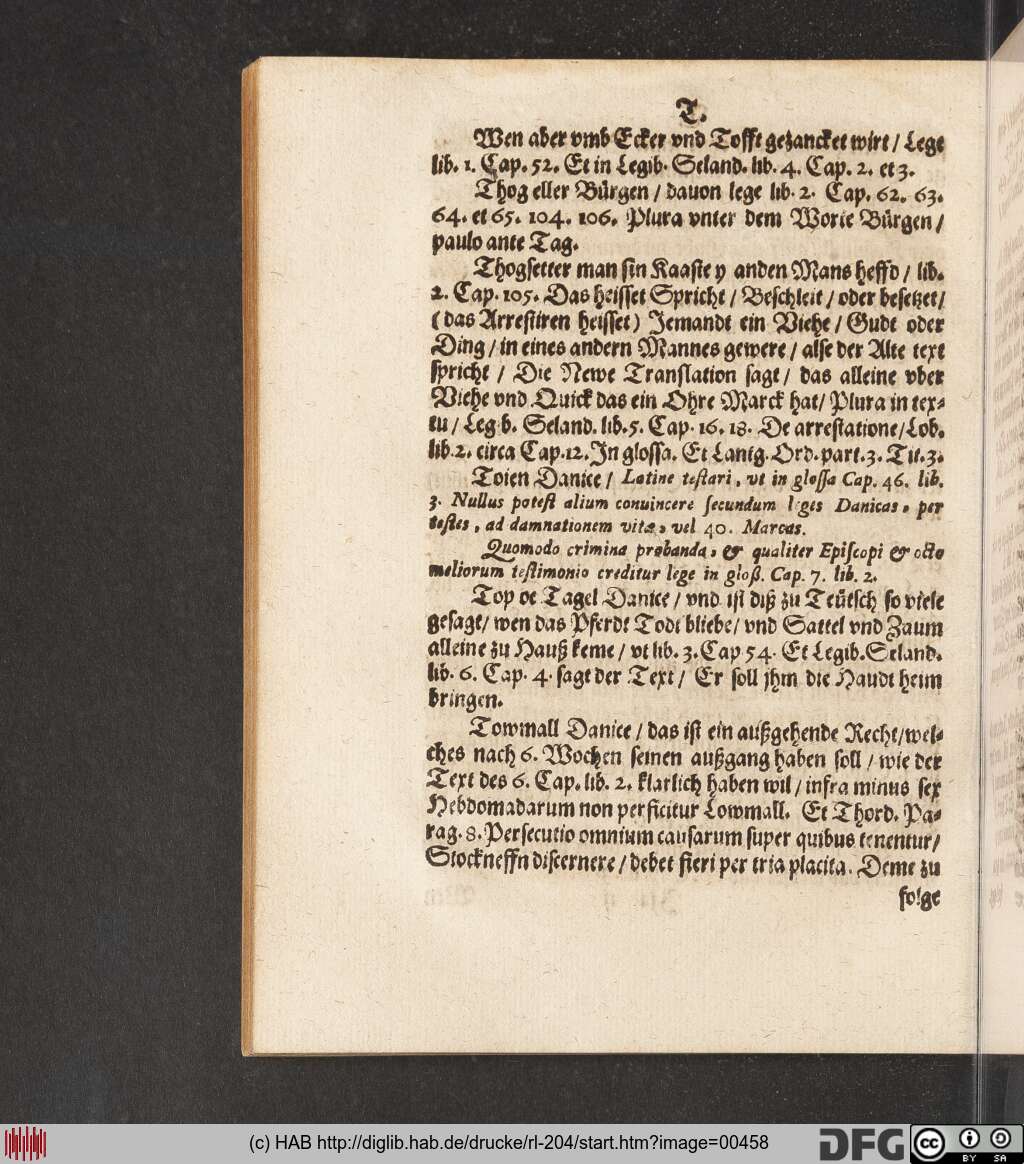 T.
Wen aber vmb Ecker vnd Tofft gezancket wirt / Lege
lib. 1. Cap. 52. Et in Legib. Seland. lib. 4. Cap. 2. et 3.
Thog eller Bürgen / dauon lege lib. 2. Cap. 62. 63.
64. et 65. 104. 106. Plura vnter dem Worte Bürgen /
paulo ante Tag.
Thogsetter man sin Kaaste y anden Mans heffd / lib.
2. Cap. 105. Das heisset Spricht / Beschleit / oder besetzet /
(das Arrestiren heisset) Jemandt ein Viehe / Gudt oder
Ding / in eines andern Mannes gewere / alse der Alte text
spricht / Die Newe Translation sagt / das alleine vber
Viehe vnd Quick das ein Ohre Marck hat / Plura in tex-
tu / Legib. Seland. lib. 5. Cap. 16. 18. De arrestatione / Lob.
lib. 2. circa Cap. 12. In glossa. Et Lantg. Ord. part. 3. Tit. 3.
Toien Danice / Latine testari, vt in glossa Cap. 46. lib.
3. Nullus potest alium conuincere secundum leges Danicas, per
testes, ad damnationem vitæ, vel 40. Marcas.
Quomodo crimina probanda, & qualiter Episcopi & octo
meliorum testimonio creditur lege in gloß. Cap. 7. lib. 2.
Top oc Tagel Danice / vnd ist diß zu Teütsch so viele
gesagt / wen das Pferdt Todt bliebe / vnd Sattel vnd Zaum
alleine zu Hauß keme / vt lib. 3. Cap 54. Et Legib. Seland.
lib. 6. Cap. 4. sagt der Text / Er soll jhm die Haudt heim
bringen.
Towmall Danice / das ist ein außgehende Recht / wel-
ches nach 6. Wochen seinen außgang haben soll / wie der
Text des 6. Cap. lib. 2. klarlich haben wil / infra minus sex
Hebdomadarum non perficitur Lowmall. Et Thord. Pa-
rag. 8. Persecutio omnium causarum super quibus tenentur /
Stockneffn discernere / debet fieri per tria placita. Deme zu
folge
(c) HAB http://diglib.hab.de/drucke/rl-204/start.htm?image=00458
DFG
cc
BY SA